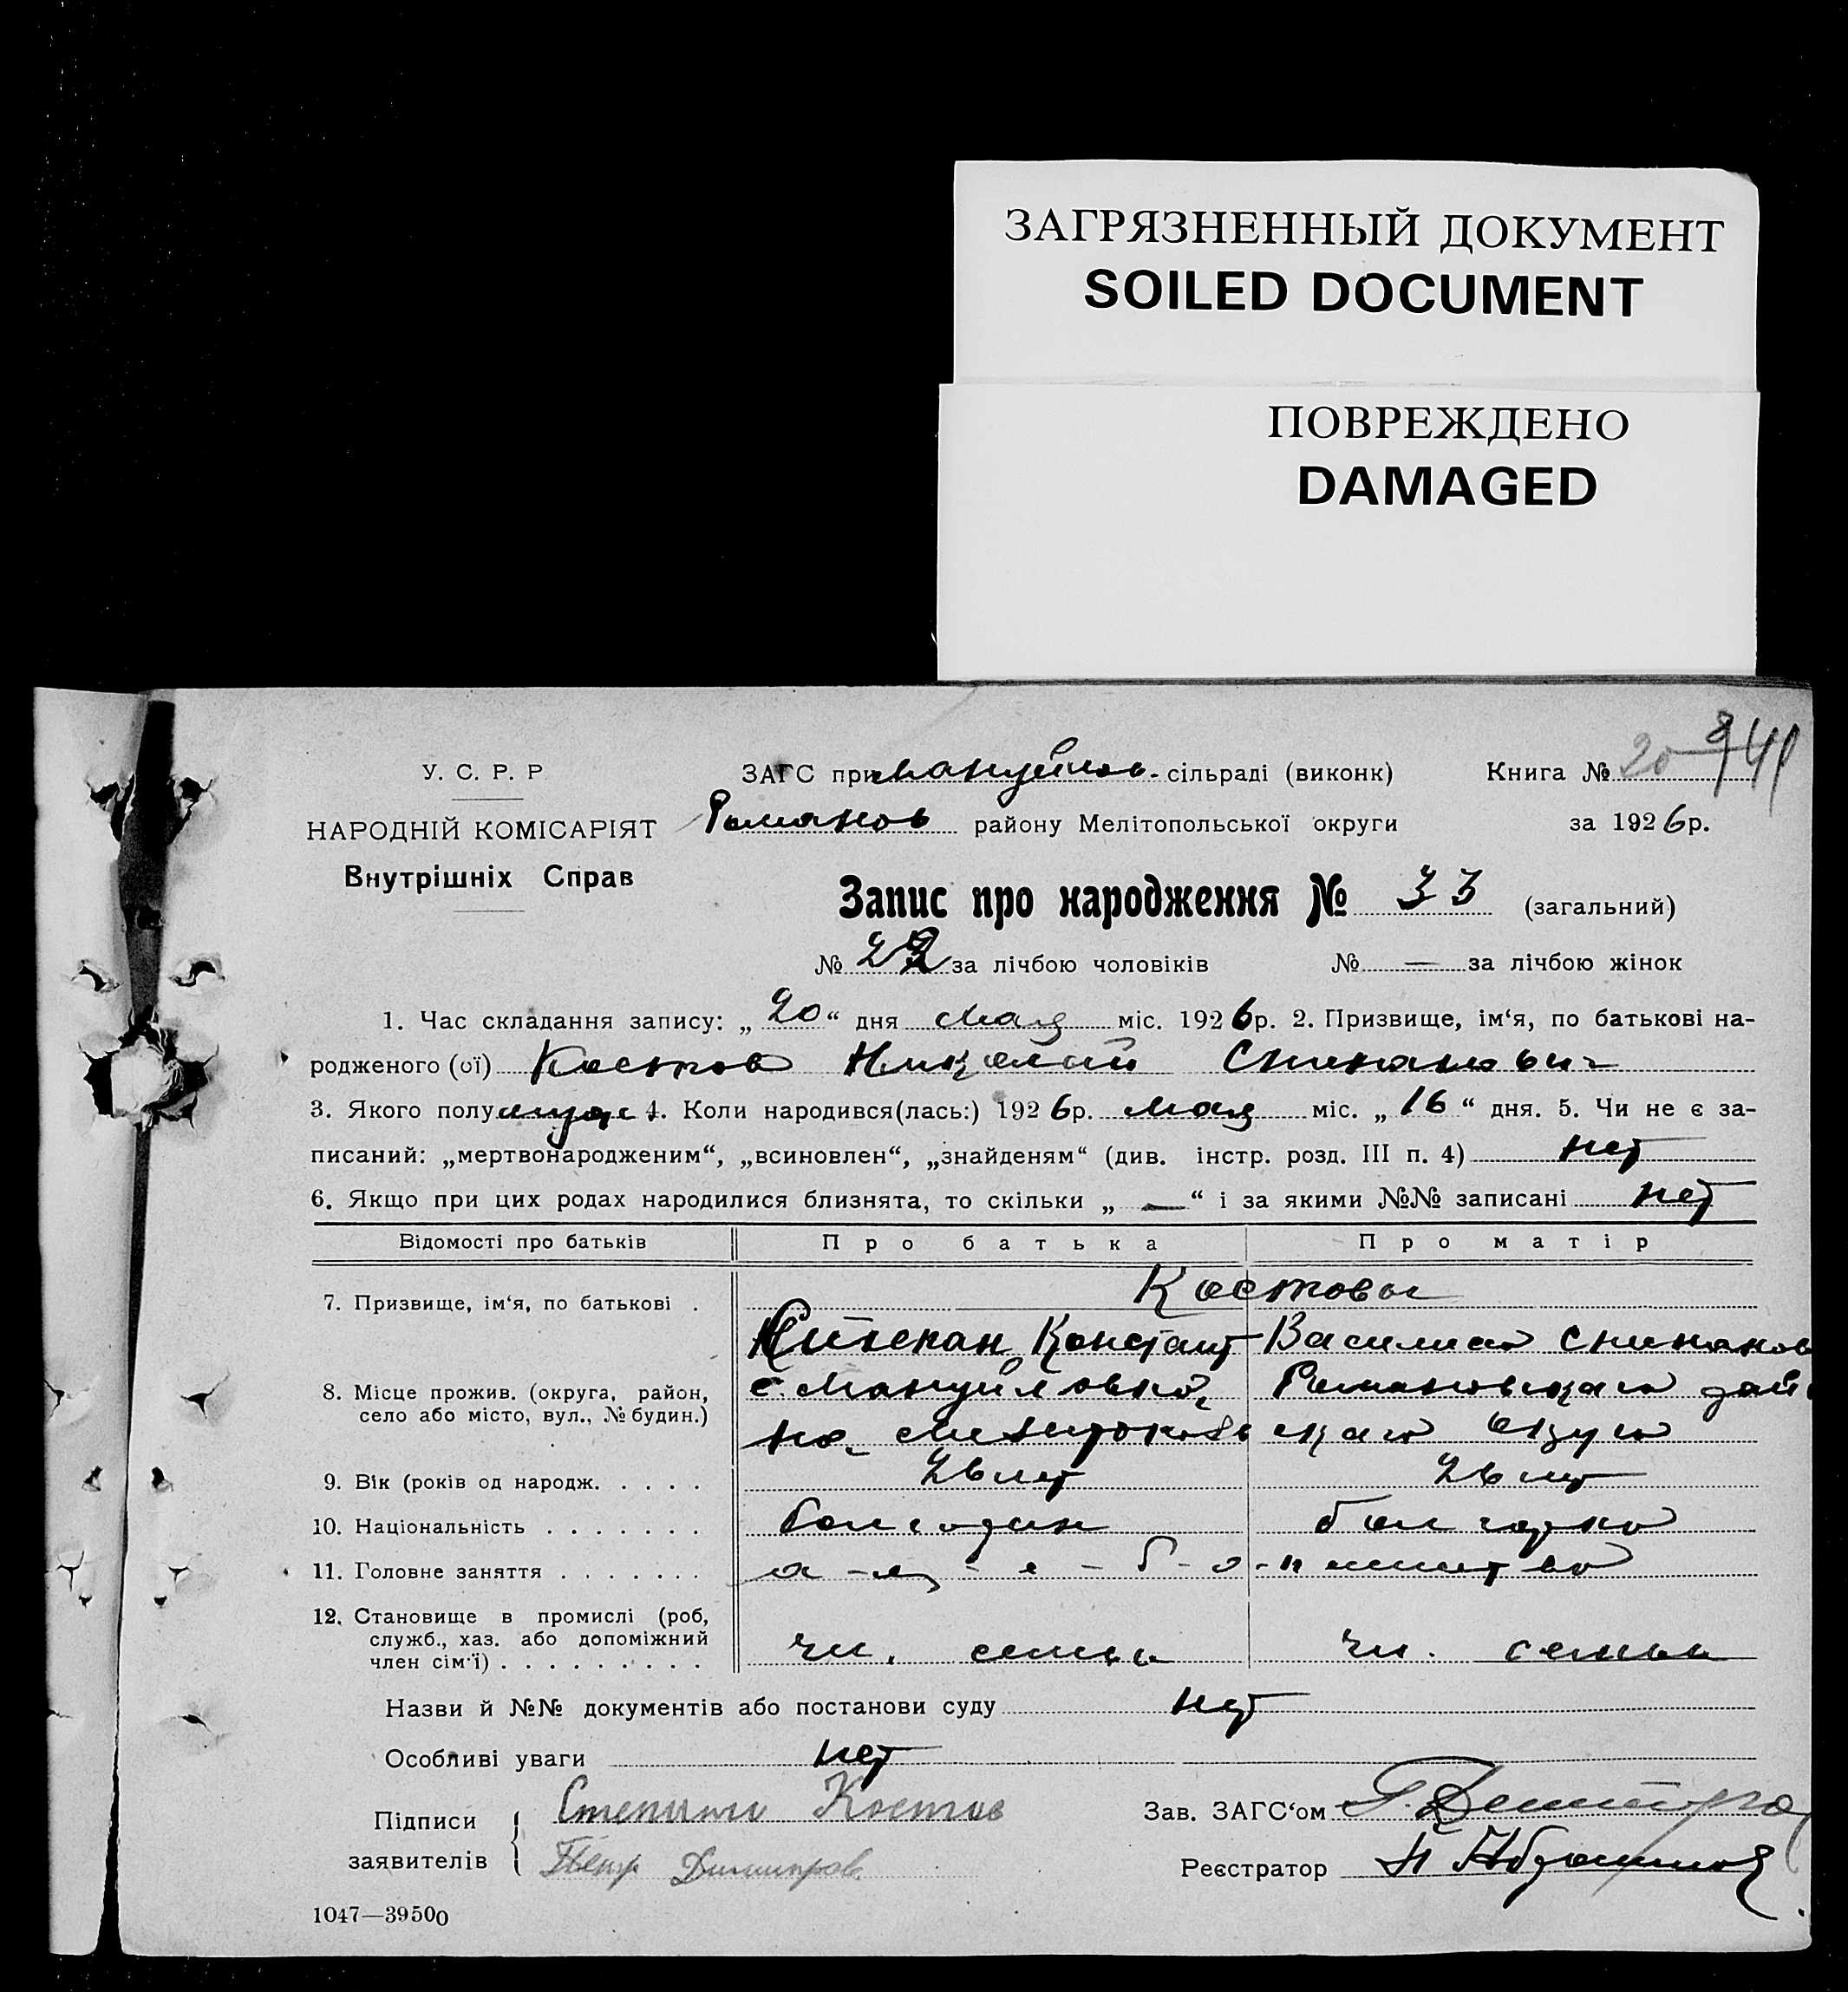 ЗАГРЯЗНЕННЫЙ ДОКУМЕНТ
SOILED DOCUMENT
ПОВРЕЖДЕНО
DAMAGED
У. С. Р. Р
НАРОДНІЙ КОМІСАРІЯТ
Внутрішніх Справ
ЗАГС при Мануйлов. сільраді (виконк) Книга № 20
Романов району Мелітопольської округи за 1926 р.
Запис про народження № 33 (загальний)
№ 22 за лічбою чоловіків № — за лічбою жінок
1. Час складання запису: „20“ дня Мая міс. 1926 р. 2. Призвище, ім‘я, по батькові на-
родженого (ої) Костов Николай Степанович
3. Якого полу муж 4. Коли народився(лась:) 1926 р. Мая міс. „16“ дня. 5. Чи не є за-
писаний: „мертвонародженим“, „всиновлен“, „знайденям“ (див. інстр. розд. III п. 4) нет
6. Якщо при цих родах народилися близнята, то скільки „—“ і за якими №№ записані нет
Відомості про батьків Про батька Про матір
7. Призвище, ім‘я, по батькові . Костовы
Степан Констант Василиса Степанов
8. Місце прожив. (округа, район, с. Мануйловка, Романовского рай
село або місто, вул., № будин.)
на Мелитопольского округа
9. Вік (років од народж. . . . . 26 лет 26 лет
10. Національність . . . . . . . болгарин болгарка
11. Головне заняття . . . . . . .
12. Становище в промислі (роб,
служб., хаз. або допоміжний
член сім‘ї) . . . . . . . . . чл. семьи чл. семьи
Назви й №№ документів або постанови суду нет
Особливі уваги нет
Підписи Степан Костов Зав. ЗАГС‘ом
заявителів Петр Димитров Реєстратор
1047—39500